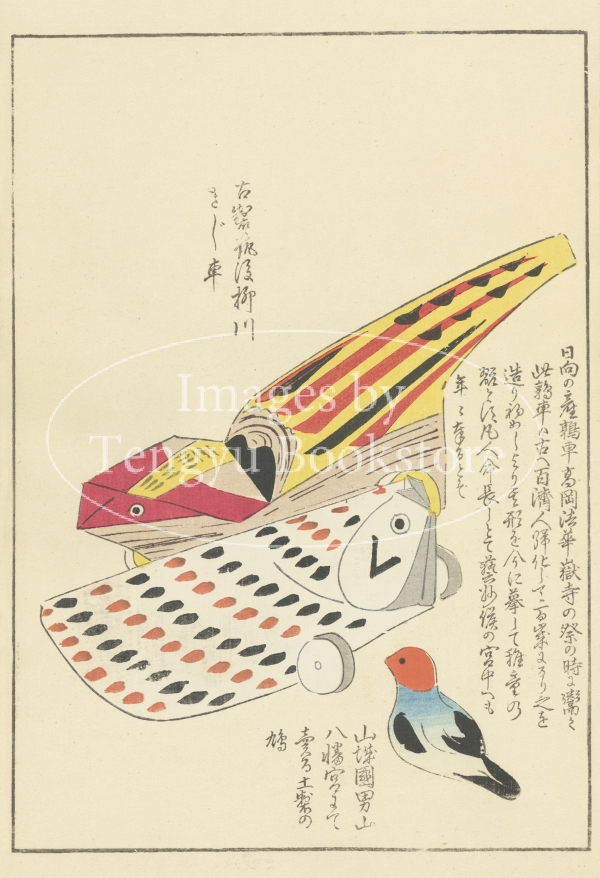 日向の産鶉車高岡法華嶽寺の祭の時に鬻く
此鶉車ハ古へ百濟人歸化して一百歳になり之を
造り初めしより其形を今に摹して稚童の
翫と須凡人命長しとて藝州候の宮中へも
年々奉るとぞ
古製筑後柳川
きじ車
山城國男山
八幡宮にて
賣る土製の
鳩
Images by
Tengyu Bookstore